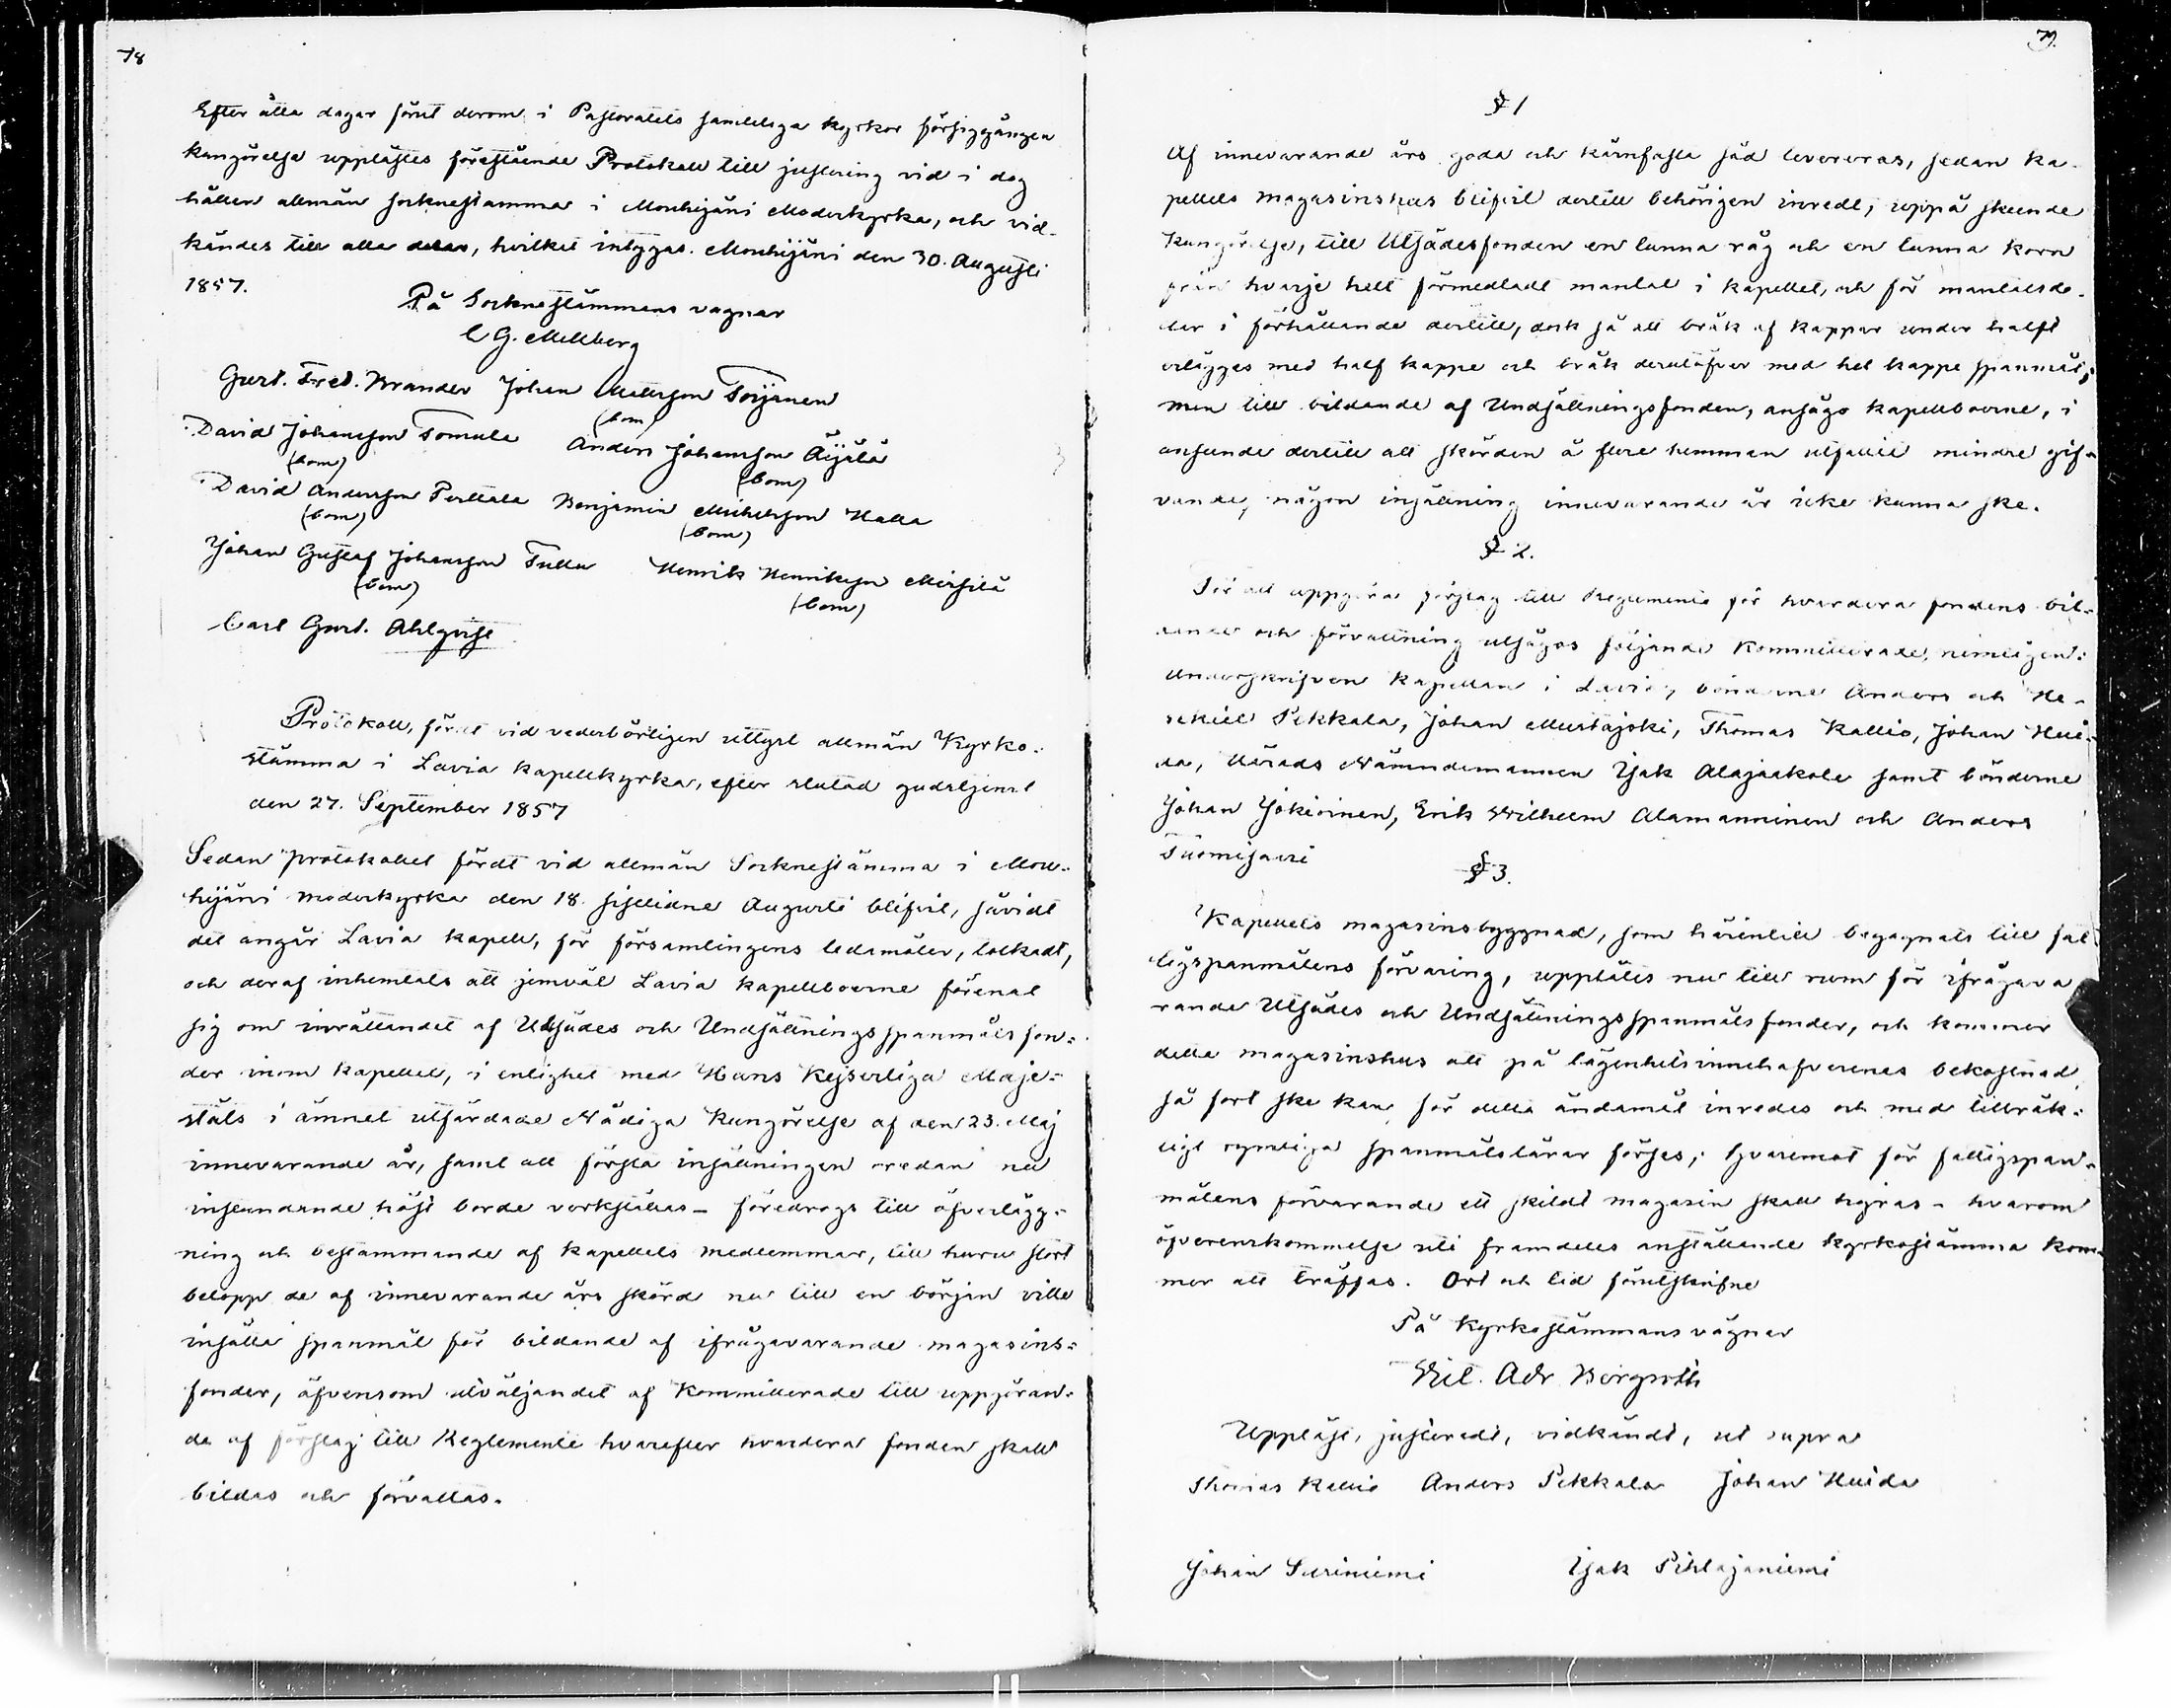 78
Efter åtta dagar förut derom i Pastoratets samteliga kyrkor försiggången
kungörelse upplästes förestående Protokoll till justering vid i dag
hållen allmän sockenestämma i Mouhijärvi Moderkyrka, och vid-
kändes till alla delar, hvilket intygas. Mouhijärvi den 30. Augusti
1857.
På Socknestämmans vägnar
C G. Mellberg
Gust. Fred. Brander Johan Mattsson Torjanen
(bom)
David Johansson Tomula Anders Johansson Äijälä
(bom) (bom)
David Andersson Perttala Benjamin Michelsson Halla
(bom) (bom)
Johan Gustaf Johansson Tulla Henrik Henriksson Mersilä
(bom) (bom)
Carl Gust. Ahlqvist
Protokoll, fördt vid vederbörligen utlyst allmän Kyrko-
stämma i Lavia kapellkyrka, efter slutad gudstjenst
den 27. September 1857
Sedan protokollet fördt vid allmän Socknestämma i Mou-
hijärvi moderkyrka den 18. sistlidne Augusti blifvit, såvidt
det angår Lavia kapell, för församlingens ledamöter, tolkadt,
och deraf inhemtats att jemväl Lavia kapellboerne förenat
sig om inrättandet af Utsädes och Undsättnings spanmåls fon-
der inom kapellet, i enlighet med Hans Kejserliga Maje-
stäts i ämnet utfärdade Nådiga Kungörelse af den 23. Maj
innevarande år, samt att första insättningen redan nu
instundande höst borde verkställas - föredrogs till öfverlägg-
ning och bestämmande af kapellets medlemmar, till huru stort
belopp de af innevarande års skörd nu till en början ville
insätta spanmål för bildande af ifrågavarande magasins-
fonder, äfvensom utväljandet af Kommitterade till uppgöran-
de af förslag till Reglemente hvarefter hvardera fonden skall
bildas och förvaltas.
79.
§ 1
Af innevarande års goda och kärnfasta säd levereras, sedan ka-
pellets magasinshus blifvit dertill behörigen inredt, uppå skeende
kungörelse, till Utsädesfonden en tunna råg och en tunna korn
från hvarje helt förmedladt mantal i kapellet, och för mantalsde-
lar i förhållande dertill, dock så att bråk af kappar under halft
erlägges med half kappe och bråk derutöfver med hel kappe spanmål;
men till bildande af Undsättningsfonden, ansågo kapellboerne, i
anseende dertill att skörden å flere hemman utfallit mindre gif-
vande, någon insättning innevarande år icke kunna ske.
§ 2.
För att uppgöra förslag till Reglemente för hvardera fondens bil-
dande och förvaltning utsågos följande Kommitterade, nemligen:
Undertecknad Kapellan i Lavia, bönderne Anders och He-
sekiel Pekkala, Johan Mustajoki, Thomas Kallio, Johan Hui-
da, Härads Nämndemannen Isak Alajaakala samt bönderne
Johan Jokioinen, Erik Wilhelm Alamanninen och Anders
Tuomisarri
§ 3.
Kapellets magasinsbyggnad, som härintill begagnats till fat-
tigspanmålens förvaring, uppläts nu till rum för ifrågava
rande Utsädes och Undsättnings spanmåls fonder, och kommer
detta magasinshus att på lägenhetsinnehafverenas bekostnad,
så fort ske kan för detta ändamål inredes och med tillräk-
ligt rymliga spanmålslårar förses; hvaremot för fattigspan-
målens förvarande ett skildt magasin skall hyras - hvarom
öfverenskommelse uti framdeles anställande kyrkostämma kom-
mer att träffas. Ort och tid förutskrifne
På Kyrkostämmans vägnar
Vil. Adr Bergroth
Uppläst, justeradt, vidkändt, ut supra
Thomas Kallio Anders Pekkala Johan Huida
Johan Suriniemi Isak Pihlajaniemi